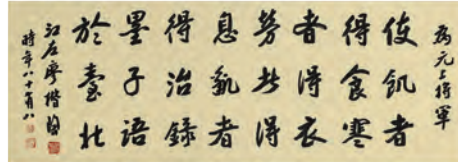 為元上將軍
使飢者
得食寒
者得衣
勞者得
息亂者
得治錄
墨子語
於臺北
江左廖楷陶
時年八十有八